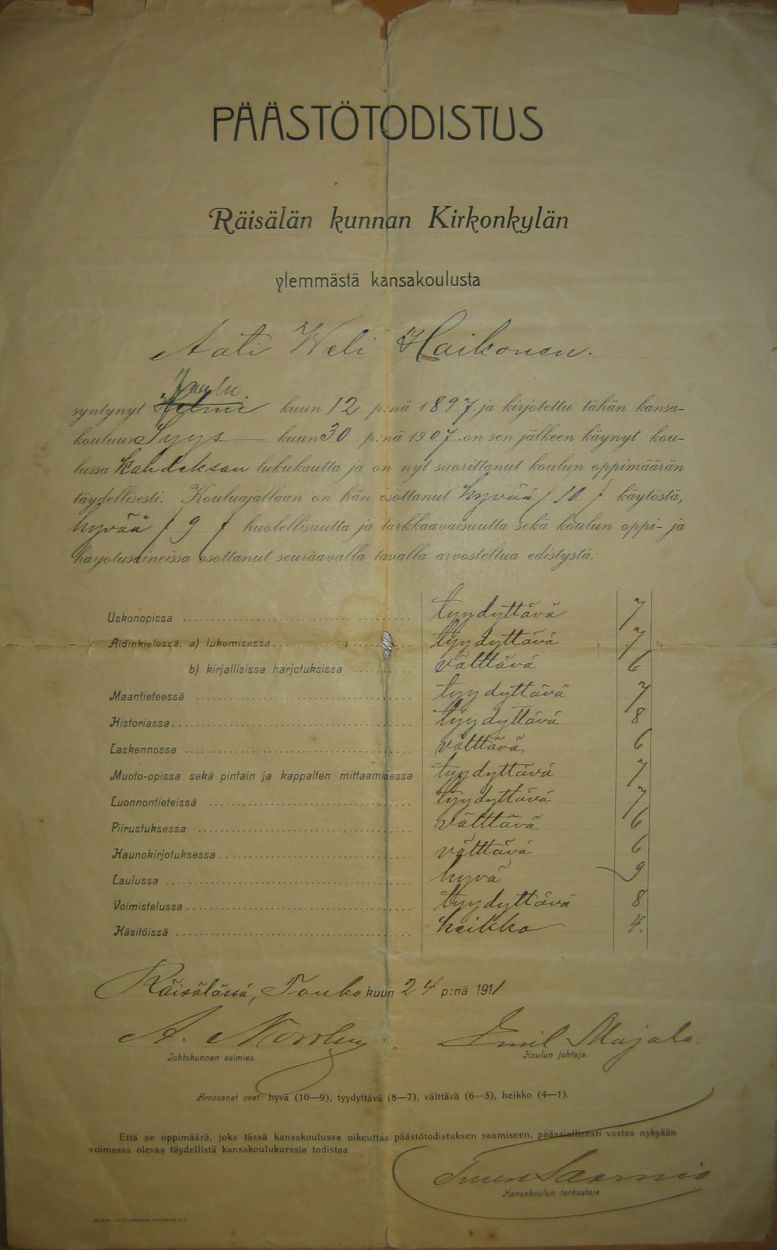 PÄÄSTÖTODISTUS
Räisälän kunnan Kirkonkylän
ylemmästä kansakoulusta
Aati Weli Haikonen.
Joulu
syntynyt Helmi kuun 12 p:nä 1897 ja kirjotettu tähän kansa-
kouluun Syys kuun 30 p:nä 1907 on sen jälkeen käynyt kou-
lussa kahdeksan lukukautta ja on nyt suorittanut koulun oppimäärän
täydellisesti. Kouluajallaan on hän osottanut hyvää / 10 / käytöstä,
hyvää / 9 / huolellisuutta ja tarkkaavaisuutta sekä koulun oppi- ja
harjotusaineissa osottanut seuraavalla tavalla arvosteltua edistystä:
Uskonopissa tyydyttävä 7
Äidinkielessä, a) lukemisessa tyydyttävä 7
b) kirjallisissa harjotuksissa välttävä 6
Maantieteessä tyydyttävä 7
Historiassa tyydyttävä 8
Laskennossa välttävä 6
Muoto-opissa sekä pintain ja kappalten mittaamisessa tyydyttävä 7
Luonnontieteissä tyydyttävä 7
Piirustuksessa välttävä 6
Kaunokirjotuksessa välttävä 6
Laulussa hyvä 9
Voimistelussa tyydyttävä 8
Käsitöissä heikko 4.
Räisälässä, Touko kuun 24 p:nä 1911
A. Emil Majala.
Johtokunnan esimies. Koulun johtaja.
Arvosanat ovat: hyvä (10—9), tyydyttävä (8—7), välttävä (6—5), heikko (4—1).
Että se oppimäärä, joka tässä kansakoulussa oikeuttaa päästötodistuksen saamiseen, pääasiallisesti vastaa nykyään
voimassa olevaa täydellistä kansakoulukurssia todistaa
Saarnio
Kansakoulun tarkastaja